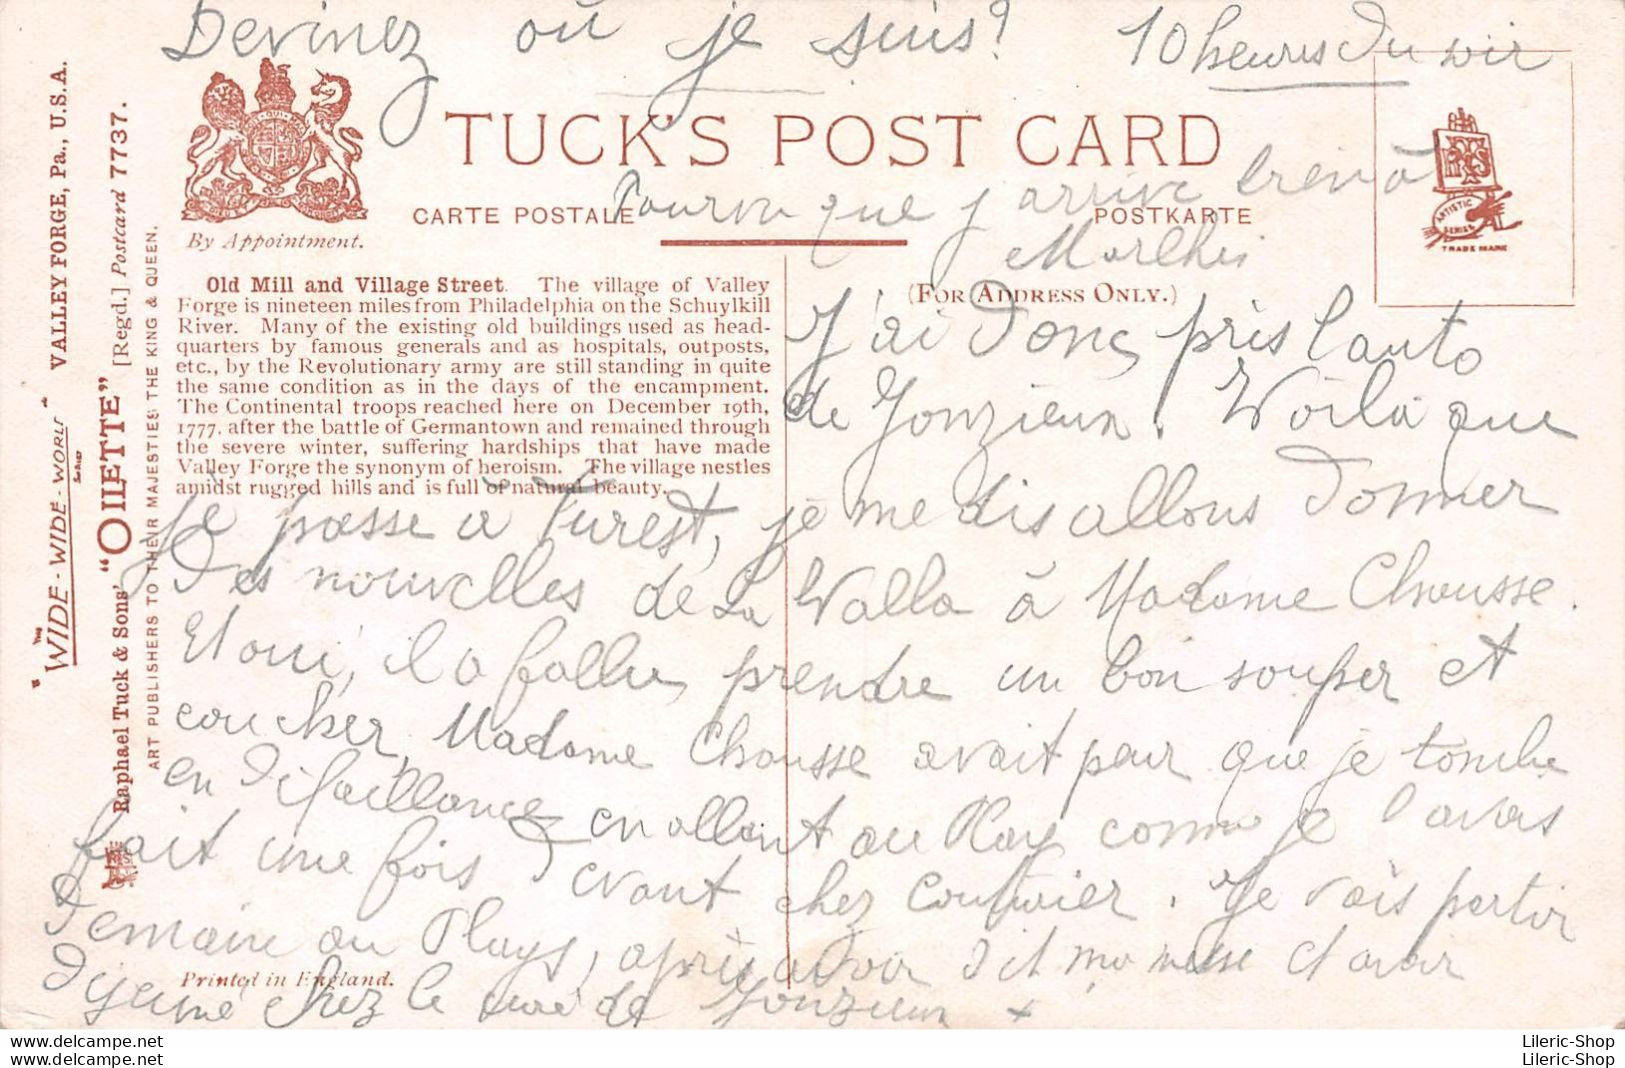 Devinez où je suis? 10 heures du soir
TUCK'S POST CARD
Pourvu que j'arrive
CARTE POSTALE
POSTKARTE
By Appointment.
ARTISTIC SERIES
TRADE MARK
(FOR ADDRESS ONLY.)
Old Mill and Village Street. The village of Valley
Forge is nineteen miles from Philadelphia on the Schuylkill
River. Many of the existing old buildings used as head-
quarters by famous generals and as hospitals, outposts,
etc., by the Revolutionary army are still standing in quite
the same condition as in the days of the encampment.
The Continental troops reached here on December 19th,
1777, after the battle of Germantown and remained through
the severe winter, suffering hardships that have made
Valley Forge the synonym of heroism. The village nestles
amidst rugged hills and is full of natural beauty.
J'ai donc pris l'auto
de Jonzieux. Voilà que
je passe à, je me dis allons donner
des nouvelles de La Valla à Madame Chausse.
Et oui, il a fallu prendre un bon souper et
coucher, Madame Chausse avait peur que je tombe
en défaillance en allant au Play comme je l'avais
fait une fois devant chez. Je vais partir
demain au Play, après avoir dit ma messe et avoir
déjeuné chez le curé de Jonzieux
Printed in England.
"THE WIDE-WIDE-WORLD" SERIES VALLEY FORGE, Pa., U.S.A.
Raphael Tuck & Sons' "OILETTE" [Regd.] Postcard 7737.
ART PUBLISHERS TO THEIR MAJESTIES THE KING & QUEEN.
www.delcampe.net
www.delcampe.net
Lileric-Shop
Lileric-Shop